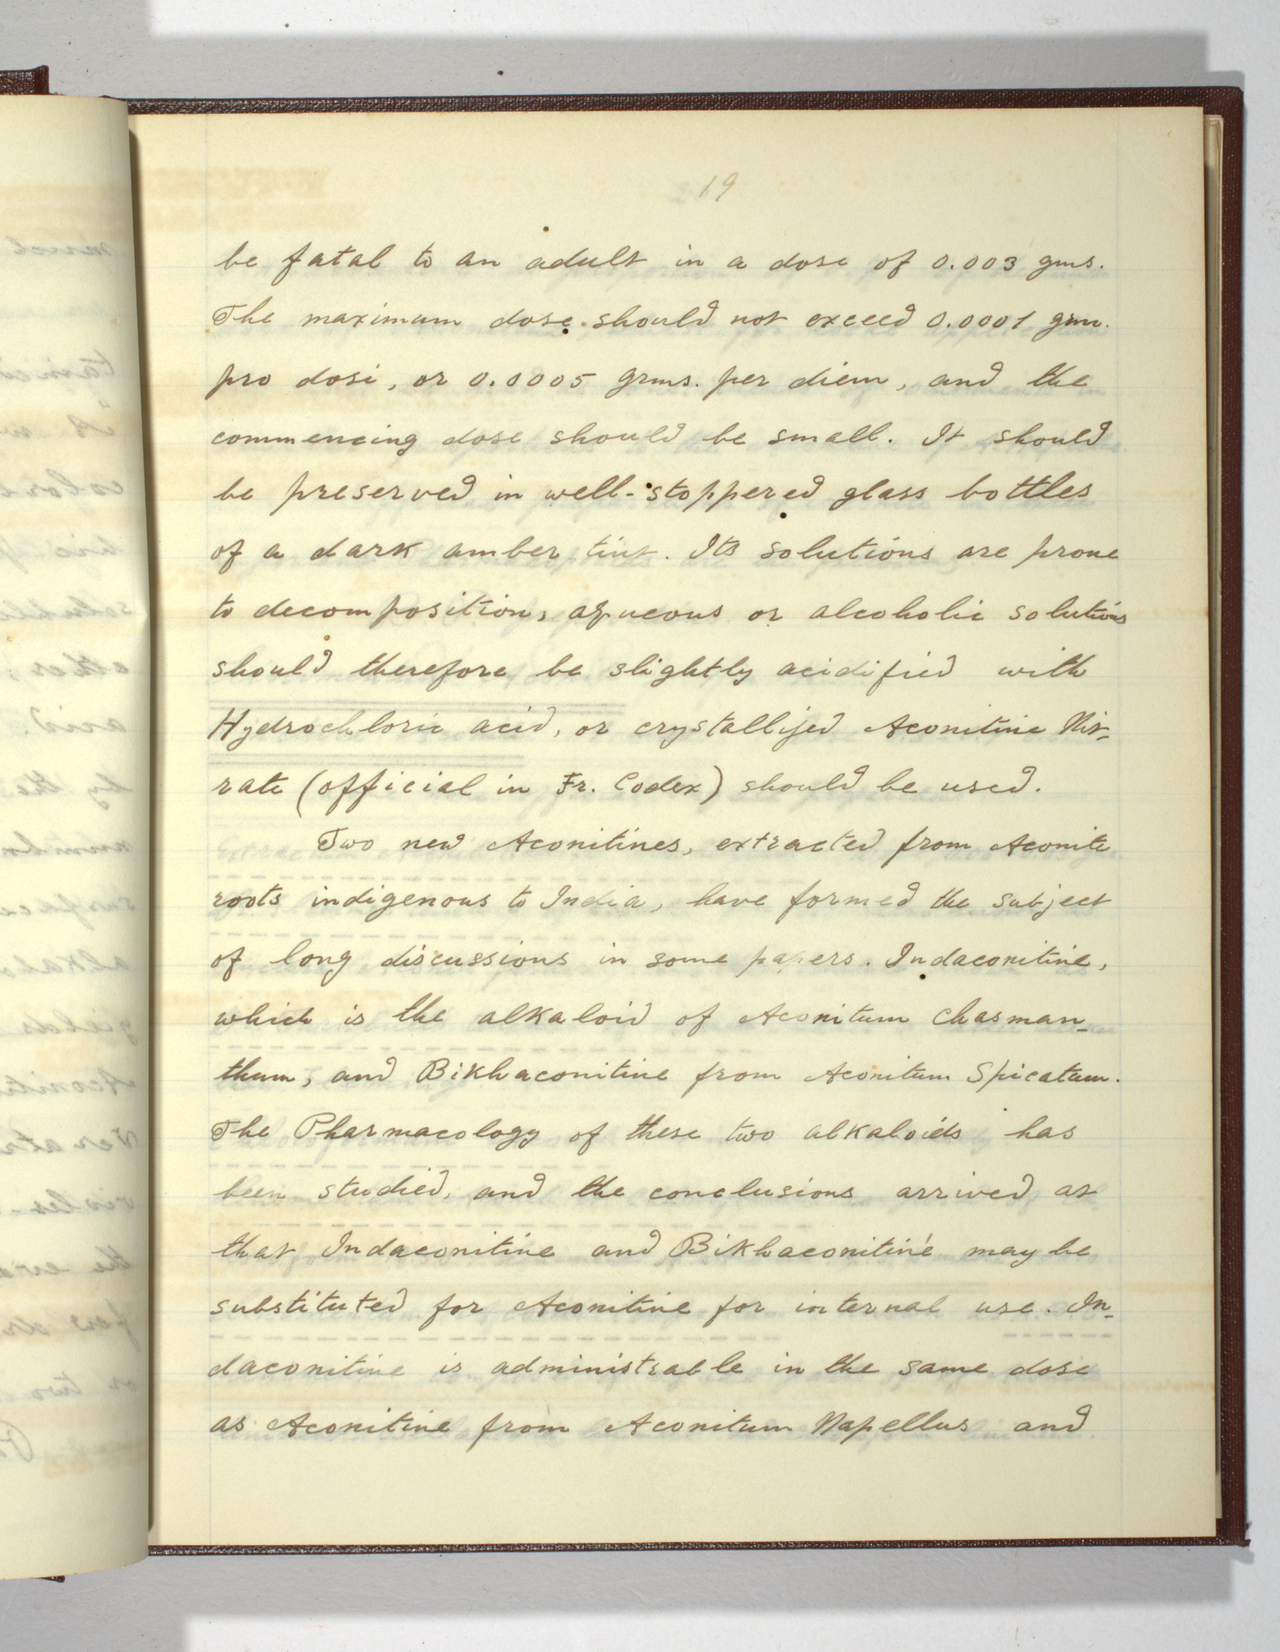 19
be fatal to an adult in a dose of 0.003 gms.
The maximum dose should not exceed 0.0001 gm.
pro dosi, or 0.0005 grms. per diem, and the
commencing dose should be small. It should
be preserved in well-stoppered glass bottles
of a dark amber tint. Its solutions are prone
to decomposition, aqueous or alcoholic solutions
should therefore be slightly acidified with
Hydrochloric acid, or crystallised Aconitine Nit-
rate (official in Fr. Codex) should be used.
Two new Aconitines, extracted from Aconite
roots indigenous to India, have formed the subject
of long discussions in some papers. Indaconitine,
which is the alkaloid of Aconitum Chasman-
thum, and Bikhaconitine from Aconitum Spicatum.
The Pharmacology of these two alkaloids has
been studied, and the conclusions arrived at
that Indaconitine and Bikhaconitine may be
substituted for Aconitine for internal use. In-
daconitine is administrable in the same dose
as Aconitine from Aconitum Napellus and